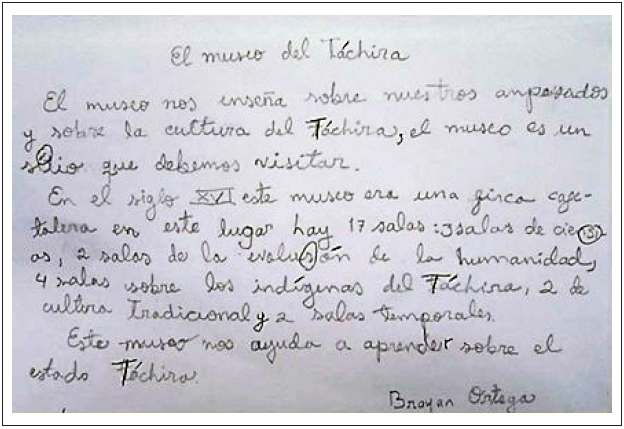 El museo del Táchira
El museo nos enseña sobre nuestros anpasados
y sobre la cultura del Táchira, el museo es un
sitio que debemos visitar.
En el siglo XVI este museo era una finca cafe-
talera en este lugar hay 17 salas: 3 salas de cien(s)i
as, 2 salas de la evolusión de la humanidad,
4 salas sobre los indígenas del Táchira, 2 de
cultura Tradicional y 2 salas temporales.
Este museo nos ayuda a aprender sobre el
estado Táchira.
Brayan Ortega